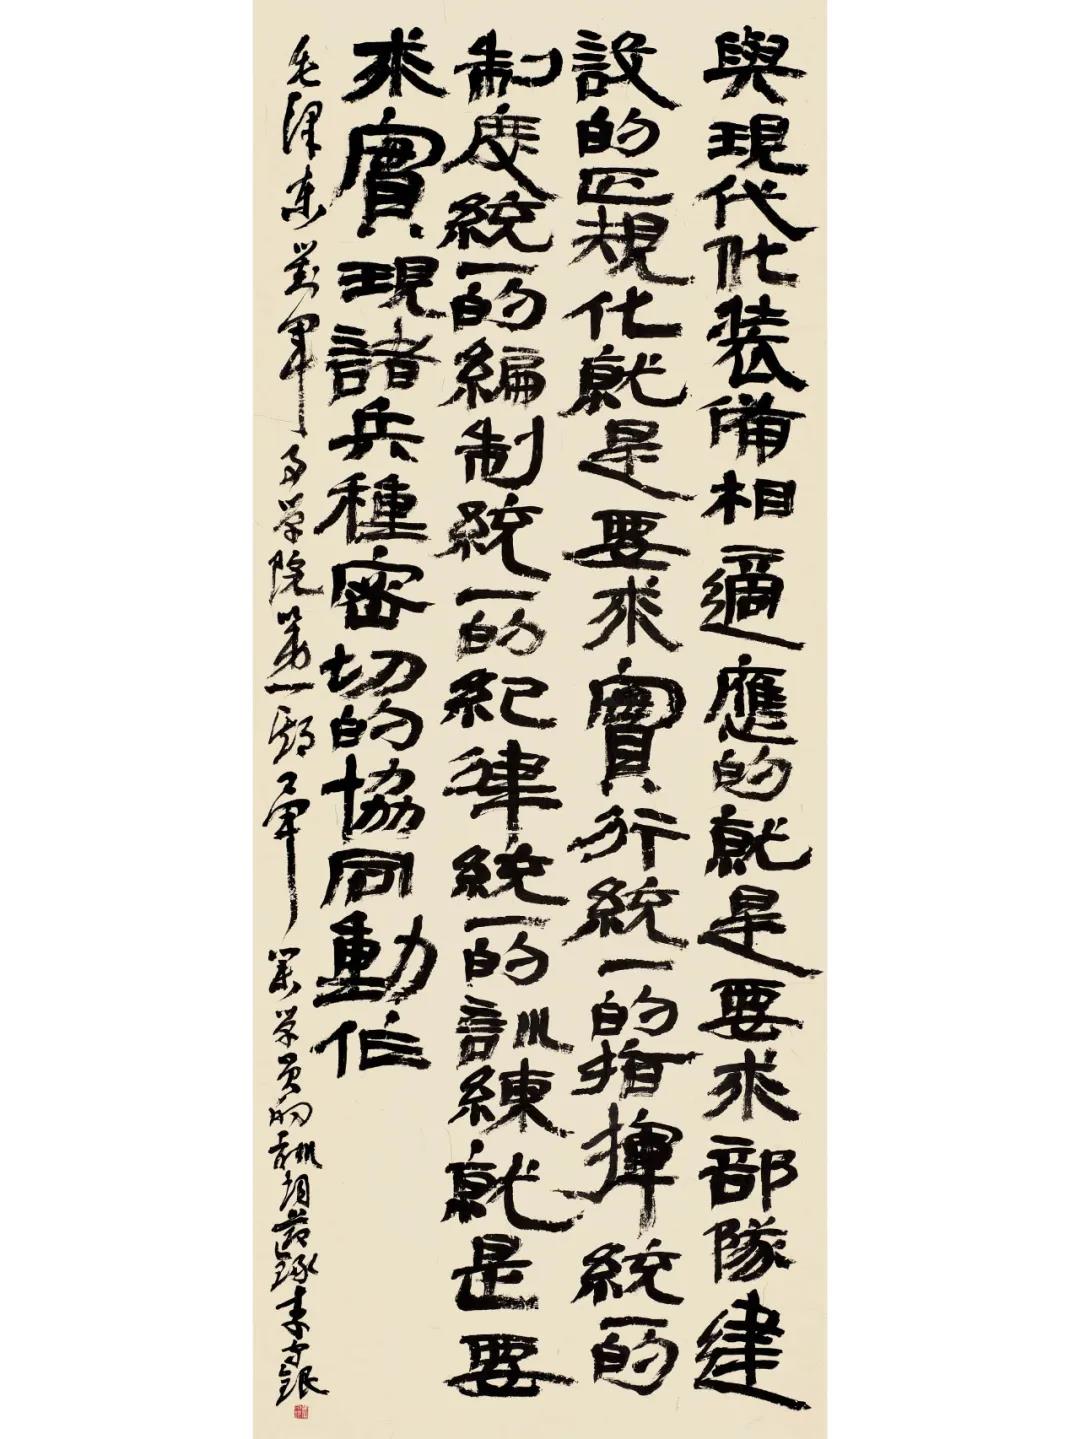 與現代化裝備相適應的就是要求部隊建
設的正規化就是要求實行統一的指揮統一的
制度統一的編制統一的紀律統一的訓練就是要
求實現諸兵種密切的協同動作
毛澤東對軍事學院第一期畢業學員的訓詞節錄李守銀